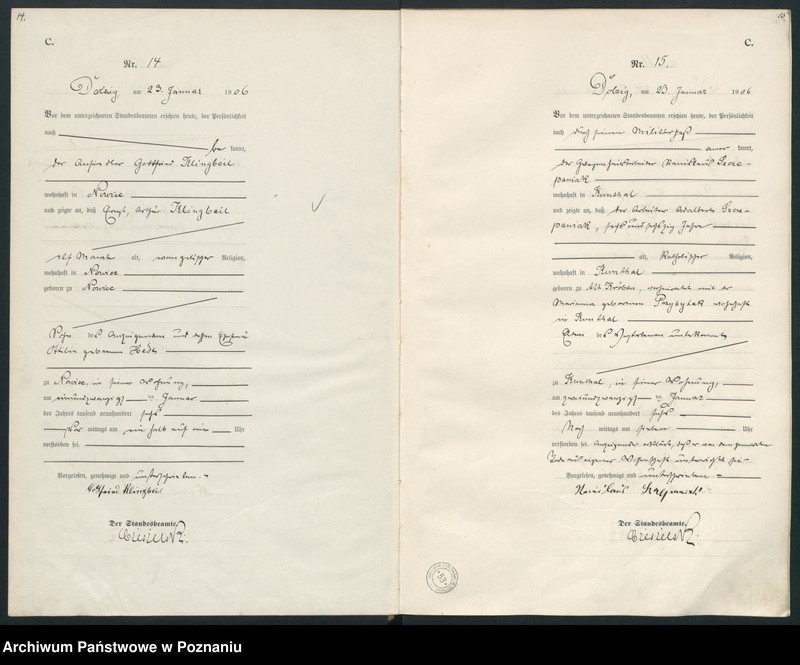 14.
C.
Nr. 14
Dolzig am 23 Januar 1906
Vor dem unterzeichneten Standesbeamten erschien heute, der Persönlichkeit
nach
be kannt,
der Ansiedler Gottfried Klingbeil
wohnhaft in Nowiec
und zeigte an, daß Ernst, Arthur Klingbeil
elf Monat alt, evangelischer Religion,
wohnhaft in Nowiec
geboren zu Nowiec
Sohn des Anzeigenden und dessen Ehefrau
Ottilie geborenen
zu Nowiec, in seiner Wohnung,
am einundzwanzigsten Januar
des Jahres tausend neunhundert sechs
Vor mittags um ein halb auf eins Uhr
verstorben sei.
Vorgelesen, genehmigt und unterschrieben.
Gottfried Klingbeil
Der Standesbeamte.
15.
C.
Nr. 15.
Dolzig, am 23. Januar 1906
Vor dem unterzeichneten Standesbeamten erschien heute, der Persönlichkeit
nach durch seinen Militärpaß
aner kannt,
der Stanislaus Szcze-
paniak
wohnhaft in Runthal
und zeigte an, daß der Arbeiter Adalbert Szcze-
paniak, sechsundsechzig Jahre
alt, Katholischer Religion,
wohnhaft in Runthal
geboren zu Alt Kröben, verheiratet mit der
Marianna geborenen Przybylak wohnhaft
in Runthal
Eltern des Verstorbenen unbekannt
zu Runthal, in seiner Wohnung,
am zweiundzwanzigsten Januar
des Jahres tausend neunhundert sechs
Nach mittags um sieben Uhr
verstorben sei. Anzeigender erklärte, daß er von dem genannten
Tode aus eigener Wissenschaft unterrichtet sei.
Vorgelesen, genehmigt und unterschrieben
Der Standesbeamte.
53
Archiwum Państwowe w Poznaniu